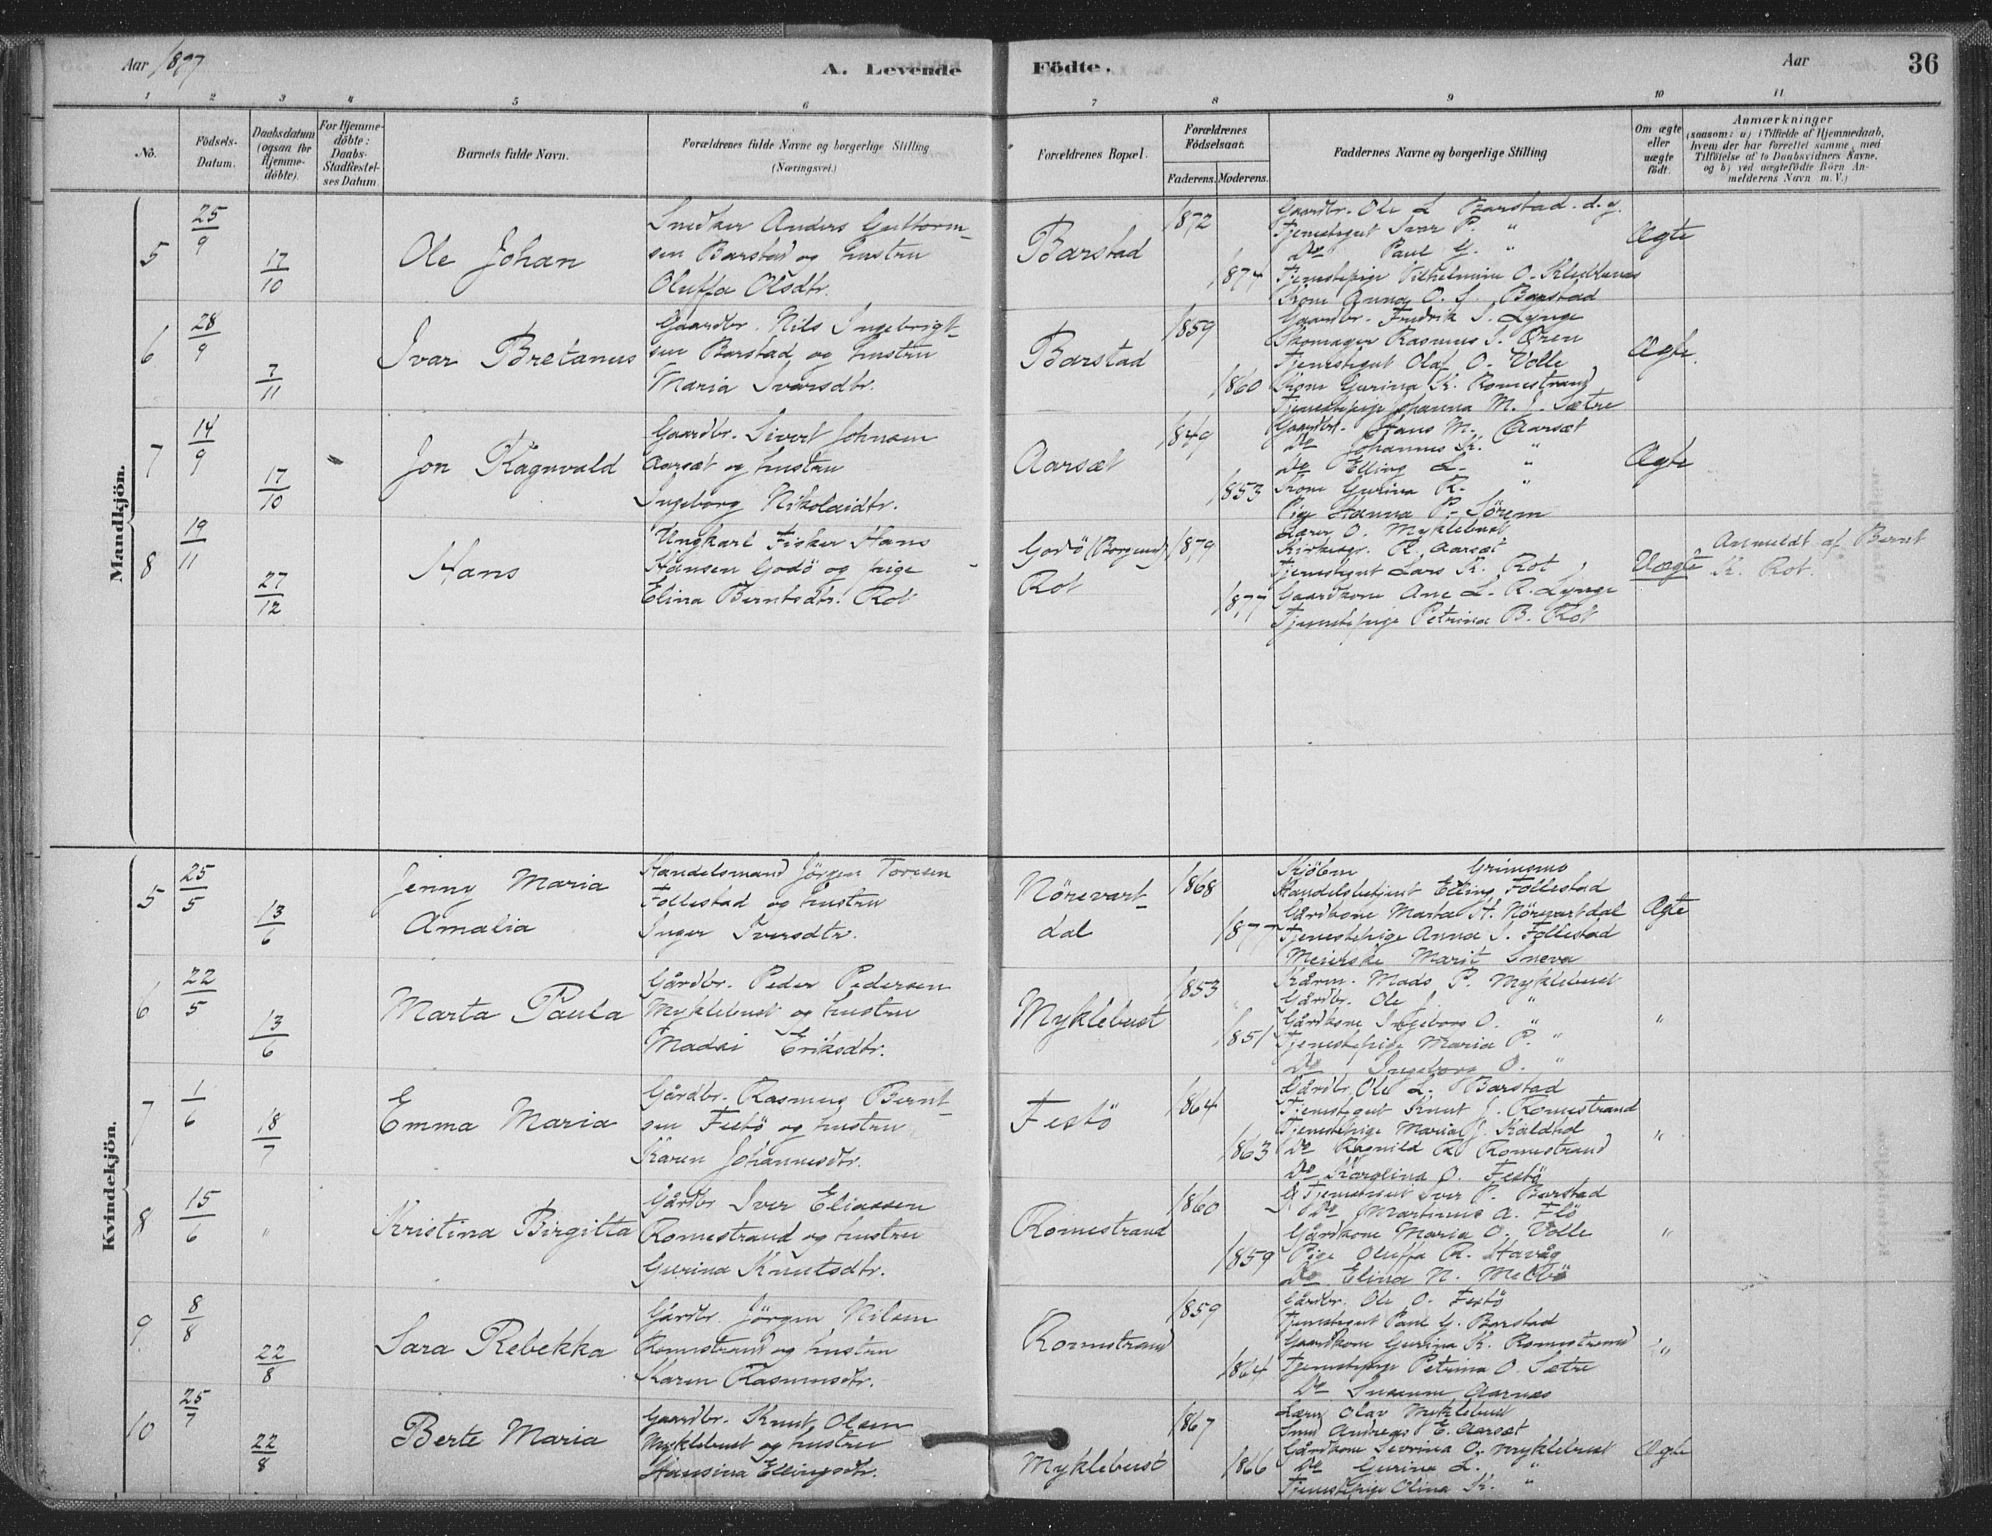 Aar 1897
A. Levende
Födte.
Aar
36
1 2 3 4 5 6 7 8 9 10 11
No.
Födsels-Datum.
Daabsdatum (ogsaa for Hjemme-döbte).
For Hjemme-döbte: Daabs-Stadfæstel-ses Datum
Barnets fulde Navn.
Forældrenes fulde Navne og borgerlige Stilling
(Næringsvei.)
Forældrenes Bopæl.
Forældrenes Födselsaar.
Faderens. Moderens.
Faddernes Navne og borgerlige Stilling
Om ægte eller uægte födt.
Anmærkninger
(saasom: a) i Tilfælde af Hjemmedaab, hvem der har forrettet samme, med Tilföielse af to Daabsvidners Navne, og b) ved uægtefödte Börn Anmelderens Navn m. V.)
Mandkjön.
5
25/9
17/10
Ole Johan
Snedker Anders Guttorm-
sen Barstad og hustru
Oluffa Olsdtr.
Barstad
1872
1874
Gaardbr. Ole L. Barstad d. y.
Tjenestegut Ivar P. "
Do Paul G. "
Tjenestepige Vilhelmine O.
Kone Anna O. S. Barstad
Ægte
6
28/9
7/11
Ivar Bretanus
Gaardbr. Nils Ingebrigt-
sen Barstad og hustru
Maria Ivarsdtr.
Barstad
1859
1860
Gaardbr. Fredrik S. Lynge
Skomager Rasmus J. Ören
Tjenestegut Olaf O. Volle
Kone Gurina K. Romestrand
Tjenestepige Johanna M. J. Sætre
Ægte.
7
14/9
17/10
Jon Ragnvald
Gaardbr. Sivert Johnsen
Aarsæt og hustru
Ingeborg Nikolaidtr.
Aarsæt
1849
1853
Gaardbr. Hans M. Aarsæt
Do Johannes K. "
Do Elling L. "
Kone Gurina R. "
Pige Hanna P. Sörem
Ægte
8
19/11
27/12
Hans
Ungkarl Fisker Hans
Hansen Godö og pige
Elina Berntsdtr. Rot
Godö (Borgund)
Rot
1879
1877
Lærer O. Myklebust
Kirkesgr. R. Aarsæt
Tjenestegut Lars K. Rot
Gaardkone Ane L. R. Lynge
Tjenestepige Petrina B. Rot
Uægte
Anmeldt af Bernt
K. Rot.
Kvindekjön.
5
25/5
13/6
Jenny Maria
Amalia
Handelsmand Jörgen Toresen
Follestad og hustru
Inger Iversdtr.
Nörevart-
dal
1868
1877
Kjöbm. Grimsmo
Handelsbetjent Elling Follestad
Gårdkone Marta H. Nörevartdal
Tjenestepige Anna S. Follestad
Meierske Marit Sneva
Ægte
6
22/5
13/6
Marta Paula
Gårdbr. Peder Pedersen
Myklebust og hustru
Madsi Eriksdtr.
Myklebust
1853
1851
Kårm. Mads P. Myklebust
Gårdbr. Ole J. "
Gårdkone Ingeborg O. "
Tjenestepige Maria P. "
Do Ingeborg O. "
"
7
1/6
18/7
Emma Maria
Gårdbr. Rasmus Bernt-
sen Festö og hustru
Karen Johannesdtr.
Festö
1864
1863
Gårdbr. Ole L. Barstad
Tjenestegut Knut J. Romestrand
Tjenestepige Maria J. Kaldhol
Do Ragnild R. Romestrand
Do Karolina O. Festö
"
8
15/6
"
Kristina Birgitta
Gårdbr Iver Eliassen
Romestrand og hustru
Gurina Knutsdtr.
Romestrand
1860
1859
Tjenestegut Iver P. Barstad
Do Martinus A. Flö
Gårdkone Maria O. Volle
Pige Oluffa R. Havåg
Do Elina N. Meltö
"
9
8/8
22/8
Sara Rebekka
Gårdbr. Jörgen Nilsen
Romestrand og hustru
Karen Rasmusdtr.
Romestrand
1859
1864
Gårdbr. Ole O. Festö
Tjenestegut Paul G. Barstad
Gaardkone Gurina K. Romestrand
Tjenestepige Petrina O. Sætre
Do Susanne Aarnæs
"
10
25/7
22/8
Berte Maria
Gaardbr. Knut Olsen
Myklebust og hustru
Hansina Ellingsdtr.
Myklebust
1867
1866
Lærer Olav Myklebust
Smed Andreas E. Aarsæt
Gårdkone Severina O. Myklebust
Do Gurine L. "
Tjenestepige Olina K. "
Ægte